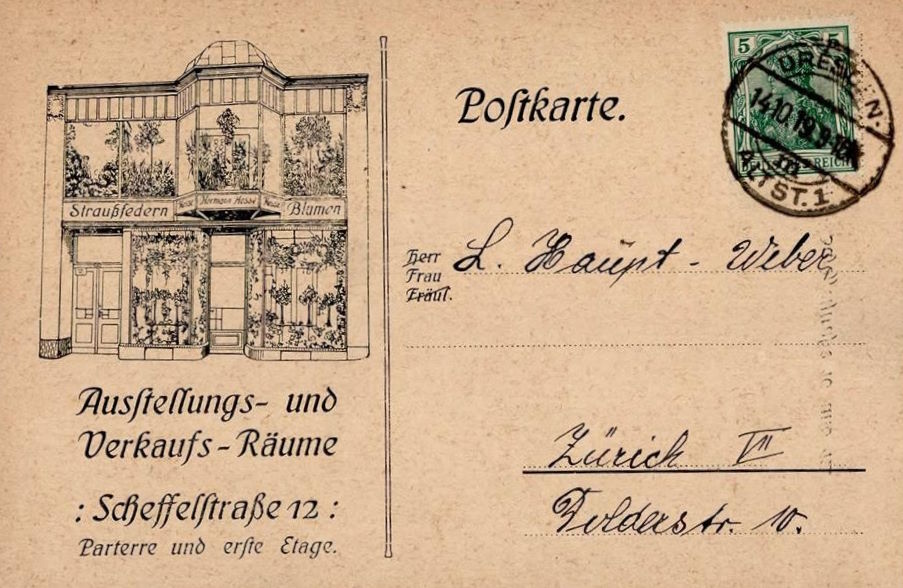 Straußfedern
Hesse Hermann Hesse Hesse
Blumen
Ausstellungs- und
Verkaufs-Räume
: Scheffelstraße 12 :
Parterre und erste Etage.
Postkarte.
5 5
REICH
DRESDEN
14.10.19. 9-10V
ALTST. 1
Herr
Frau
Fräul.
L. Haupt - Weber
Zürich VII
Dolderstr. 10.